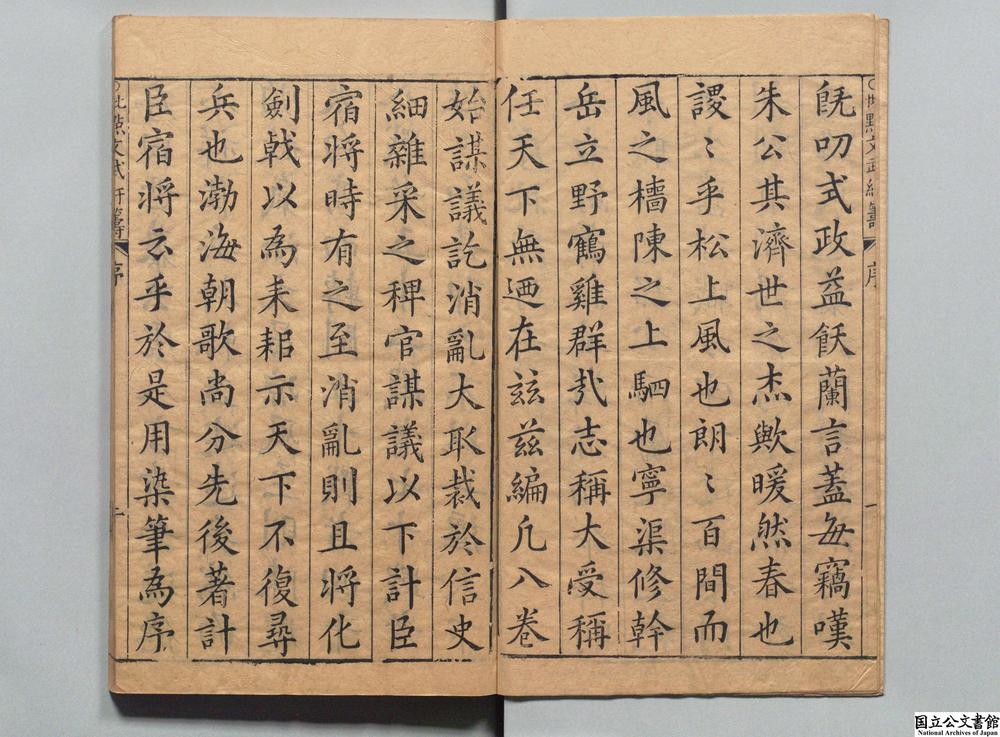 旣叨式政益飫蘭言蓋每竊嘆
朱公其濟世之杰歟暖然春也
謖〻乎松上風也朗〻百間而
風之檣陳之上駟也寧渠修幹
岳立野鶴雞群㢤志稱大受稱
任天下無迺在茲茲編凡八卷
始謀議訖消亂大取裁於信史
細雜采之稗官謀議以下計臣
宿將時有之至消亂則且將化
劍戟以為耒耜示天下不復尋
兵也渤海朝歌尚分先後著計
臣宿將云乎於是用染筆為序
序
一
序
一
国立公文書館
National Archives of Japan